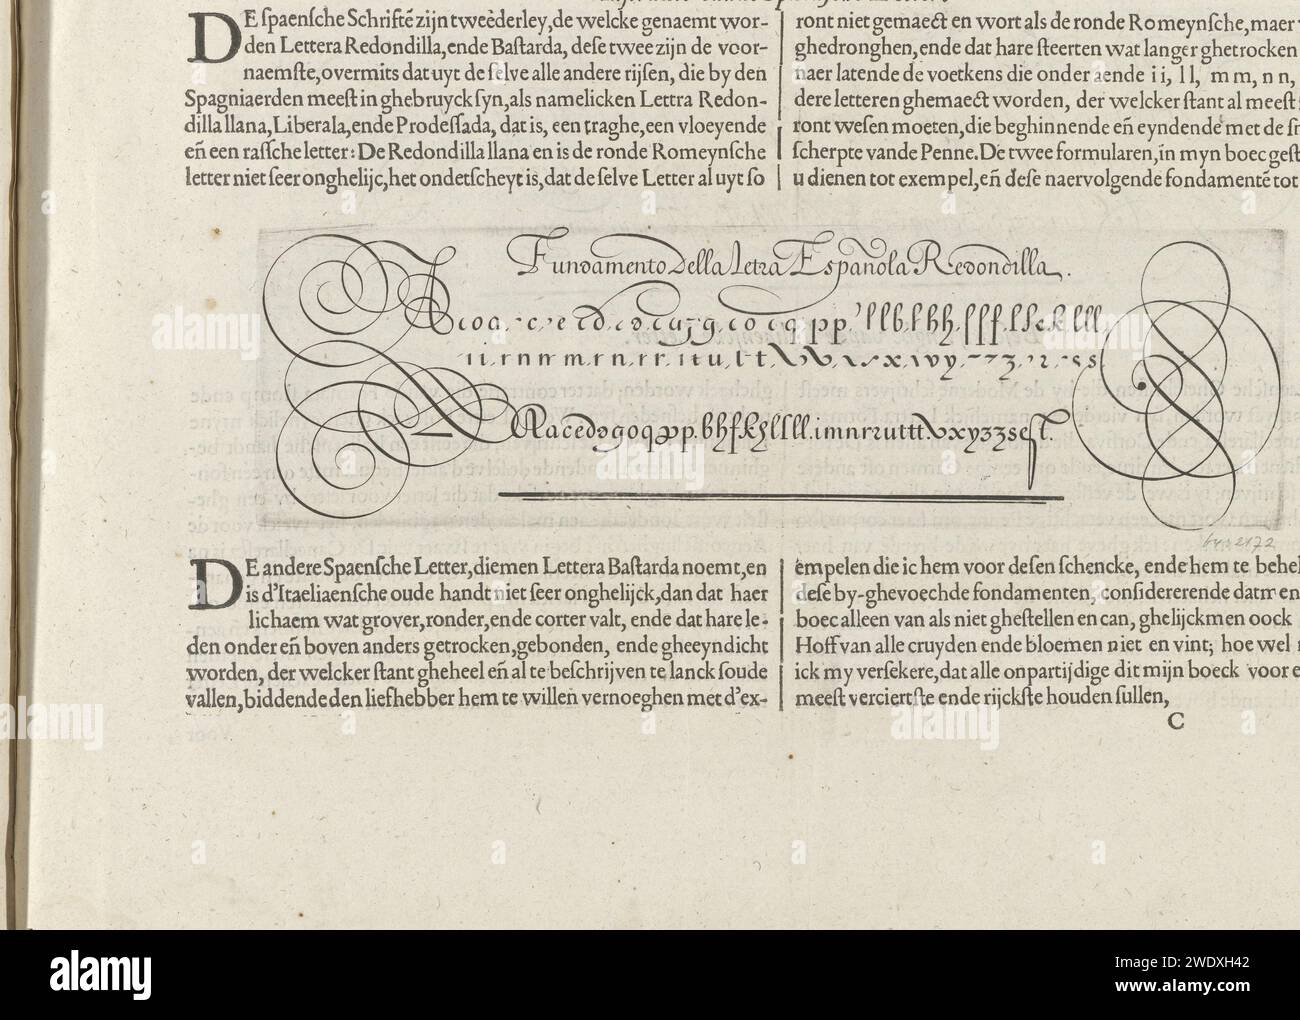 DE spaensche Schriftē zijn tweederley, de welcke genaemt wor-
den Lettera Redondilla, ende Bastarda, dese twee zijn de voor-
naemste, overmits dat uyt de selve alle andere rijsen, die by den
Spagniaerden meest in ghebruyck syn, als namelicken Lettra Redon-
dilla llana, Liberala, ende Prodessada, dat is, een traghe, een vloeyende
eñ een rassche letter: De Redondilla llana en is de ronde Romeynsche
letter niet seer onghelijc, het ondetscheyt is, dat de selve Letter al uyt so
ront niet gemaect en wort als de ronde Romeynsche, maer
ghedronghen, ende dat hare steerten wat langer ghetrocken
naer latende de voetkens die onder aende i i, l l, m m, n n,
dere letteren ghemaect worden, der welcker stant al meest
ront wesen moeten, die beghinnende eñ eyndende met de
scherpte vande Penne. De twee formularen, in myn boec
u dienen tot exempel, eñ dese naervolgende fondamentē tot
Fundamento Della Letra Española Redondilla.
Aacedɘgoqpp.bhfkhlsll.imnrzuttt.vxyzzsest.
DE andere Spaensche Letter, diemen Lettera Bastarda noemt, en
is d'Itaeliaensche oude handt niet seer onghelijck, dan dat haer
lichaem wat grover, ronder, ende corter valt, ende dat hare le-
den onder eñ boven anders getrocken, gebonden, ende gheeyndicht
worden, der welcker stant gheheel eñ al te beschrijven te lanck soude
vallen, biddende den liefhebber hem te willen vernoeghen met d'ex-
empelen die ic hem voor desen schencke, ende hem te
dese by-ghevoechde fondamenten, considererende datm en
boec alleen van als niet ghestellen en can, ghelijckmen oock
Hoff van alle cruyden ende bloemen niet en vint; hoe wel
ick my versekere, dat alle onpartijdige dit mijn boeck voor
meest verciertste ende rijckste houden sullen,
C
alamy
Image ID: 2WDXH42
www.alamy.com